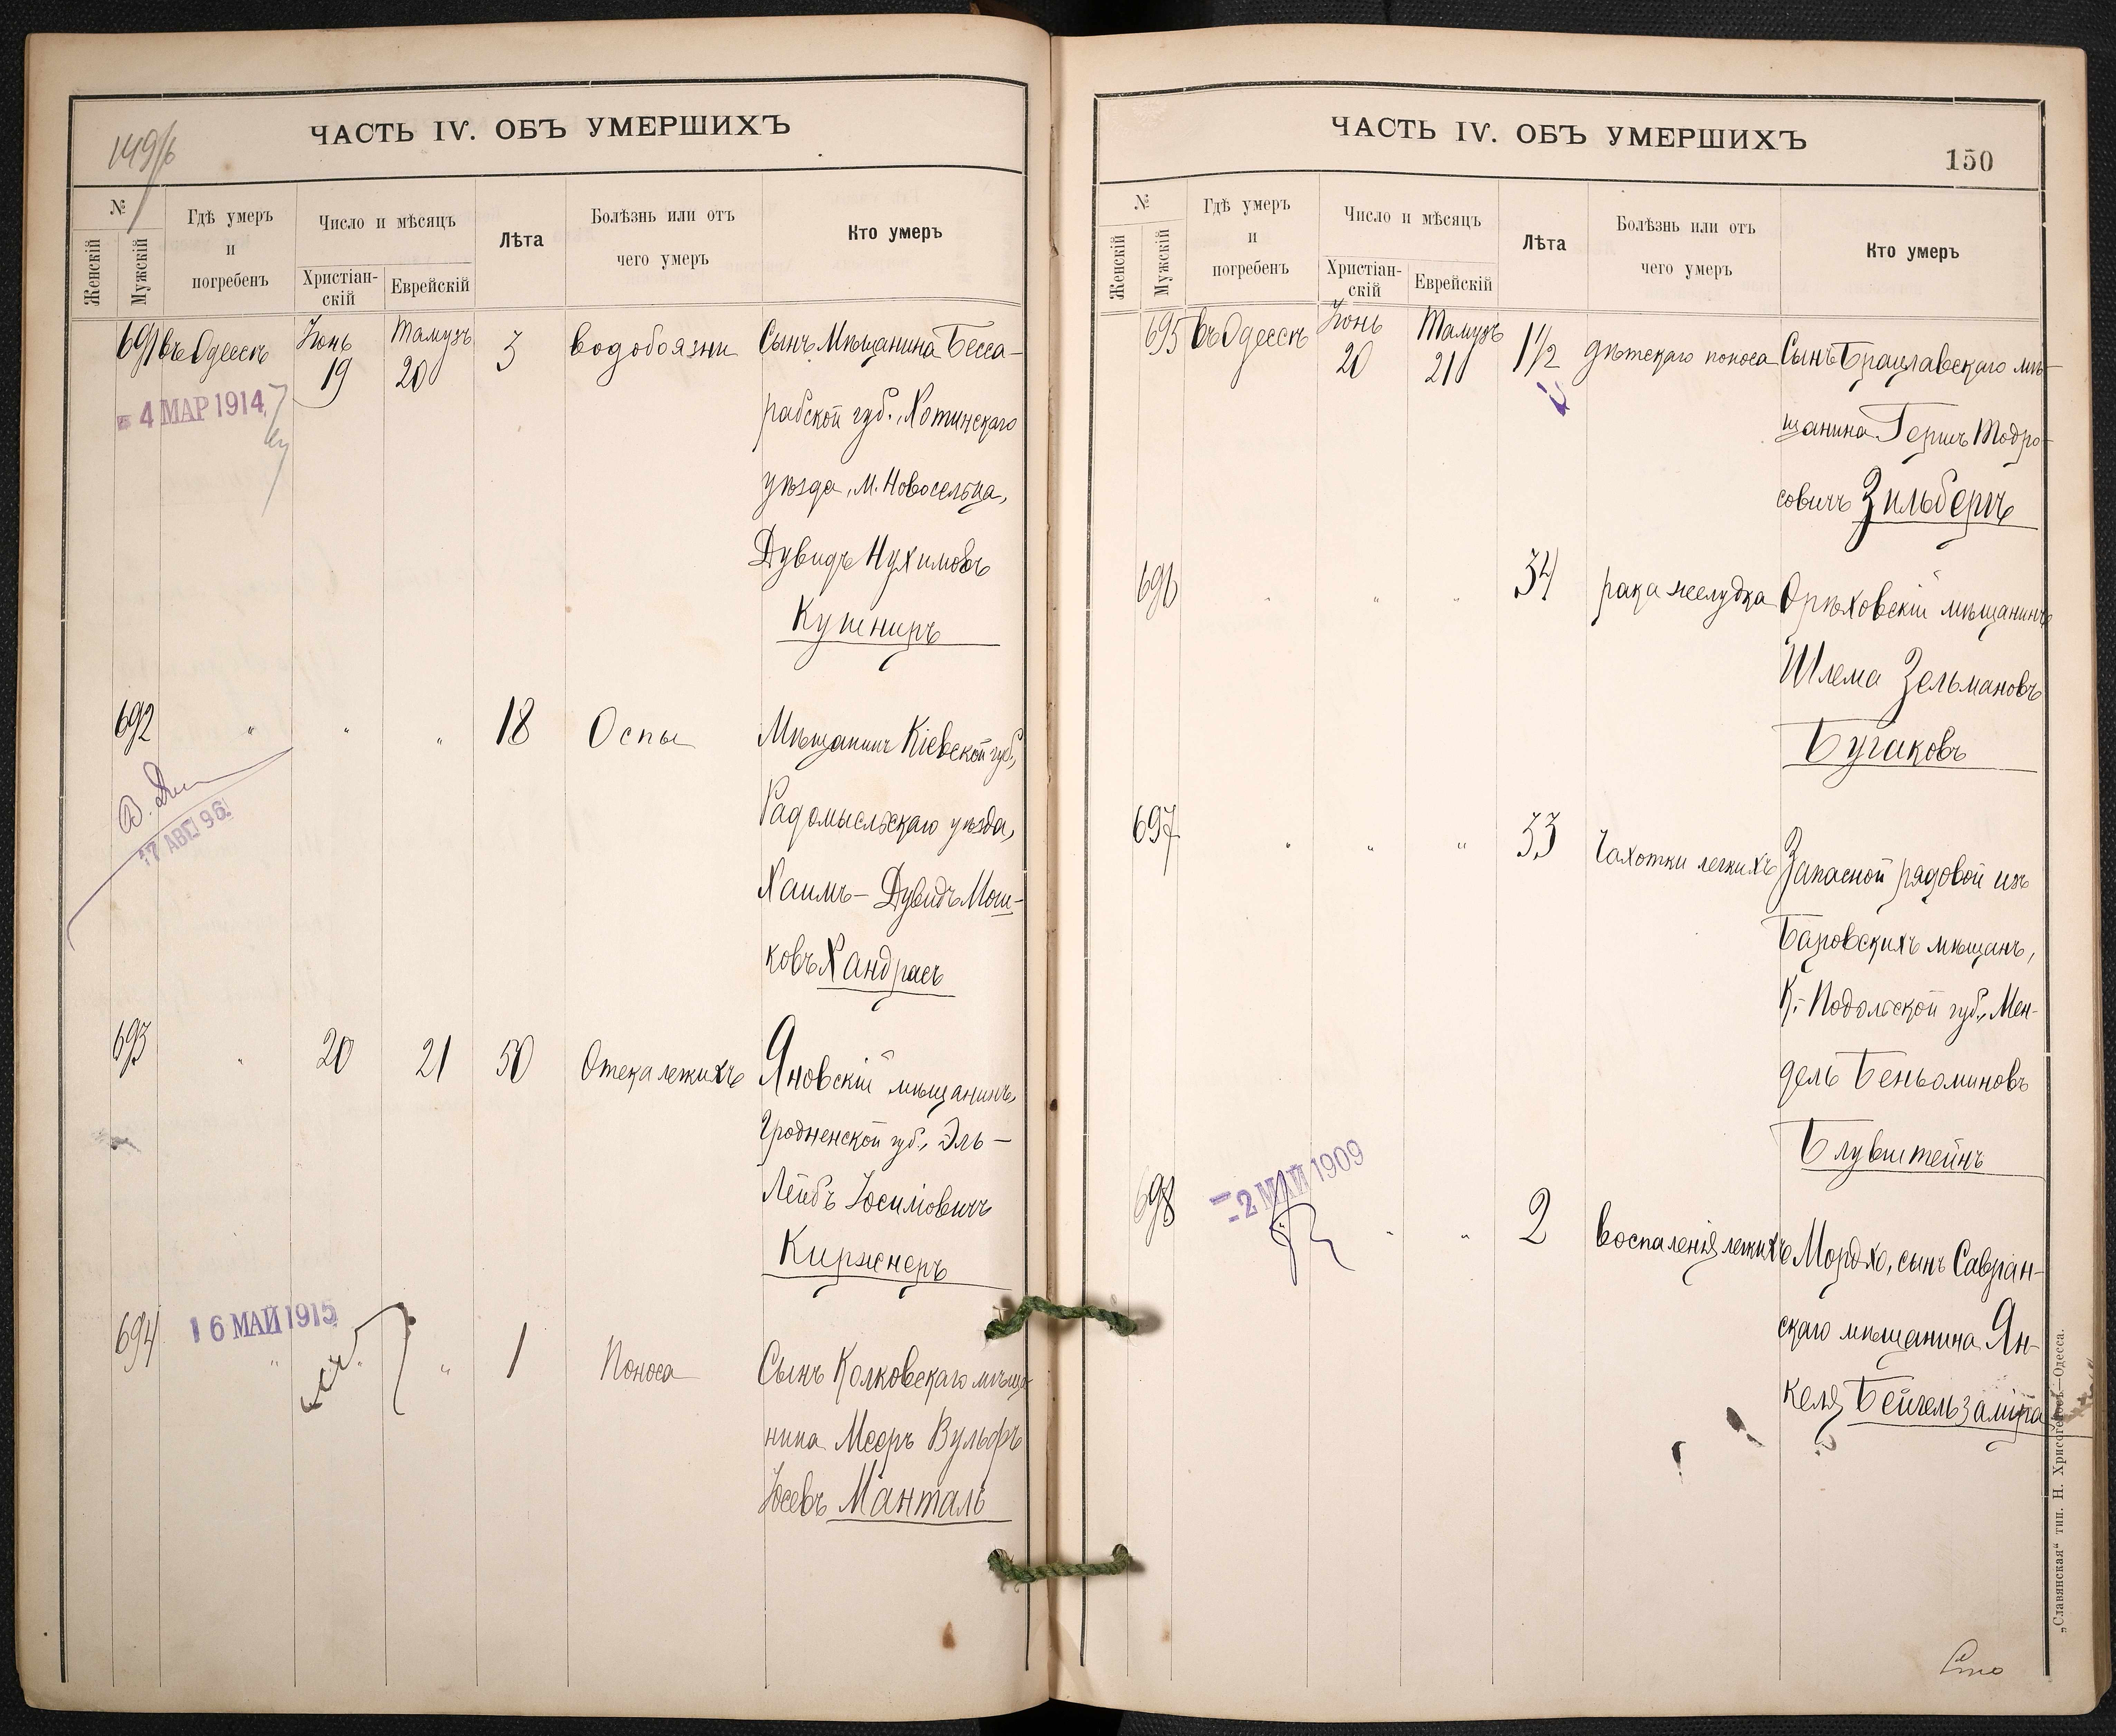 149/б
ЧАСТЬ IV. ОБЪ УМЕРШИХЪ
№
Женскій
Мужскій
Гдѣ умеръ
и
погребенъ
Число и мѣсяцъ
Христіан-
скій
Еврейскій
Лѣта
Болѣзнь или отъ
чего умеръ
Кто умеръ
691 въ Одессѣ Іюнь 19 Тамузъ 20 3 водобоязни Сынъ Мѣщанина Бесса-
рабской губ., Хотинскаго
уѣзда, м. Новоселица,
Дувидъ Нухимовъ
Кушниръ
- 4 МАР 1914
692 " " " 18 Оспы Мѣщанинъ Кіевской губ.,
Радомысльскаго уѣзда,
Хаимъ-Дувидъ Мош-
ковъ Хандрасъ
17 АВГ 96
693 " 20 21 50 Отека легкихъ Яновскій мѣщанинъ,
Гродненской губ., Эль-
Лейбъ Іосиліовичъ
Киржнеръ
694 " " " 1 Поноса Сынъ Колковскаго мѣща-
нина Мееръ Вульфъ
Іосевъ Манталь
16 МАЙ 1915
ЧАСТЬ IV. ОБЪ УМЕРШИХЪ
150
№
Женскій
Мужскій
Гдѣ умеръ
и
погребенъ
Число и мѣсяцъ
Христіан-
скій
Еврейскій
Лѣта
Болѣзнь или отъ
чего умеръ
Кто умеръ
695 въ Одессѣ Іюнь 20 Тамузъ 21 1 1/2 дѣтскаго поноса Сынъ Брацлавскаго мѣ-
щанина Гершъ Тодро-
совичъ Зильберъ
696 " " " 34 рака желудка Орѣховскій мѣщанинъ
Шлема Зельмановъ
Бугаковъ
697 " " " 33 Чахотки легкихъ Запасной рядовой изъ
Баровскихъ мѣщанъ,
К.-Подольской губ., Мен-
дель Беньоминовъ
Блувштейнъ
698 " " " 2 воспаленія легкихъ Мордхо, сынъ Савран-
скаго мѣщанина Ян-
келя Бейгельзамера
- 2 МАЙ 1909
„Славянская“ тип. Н. Хрисогелосъ.—Одесса.